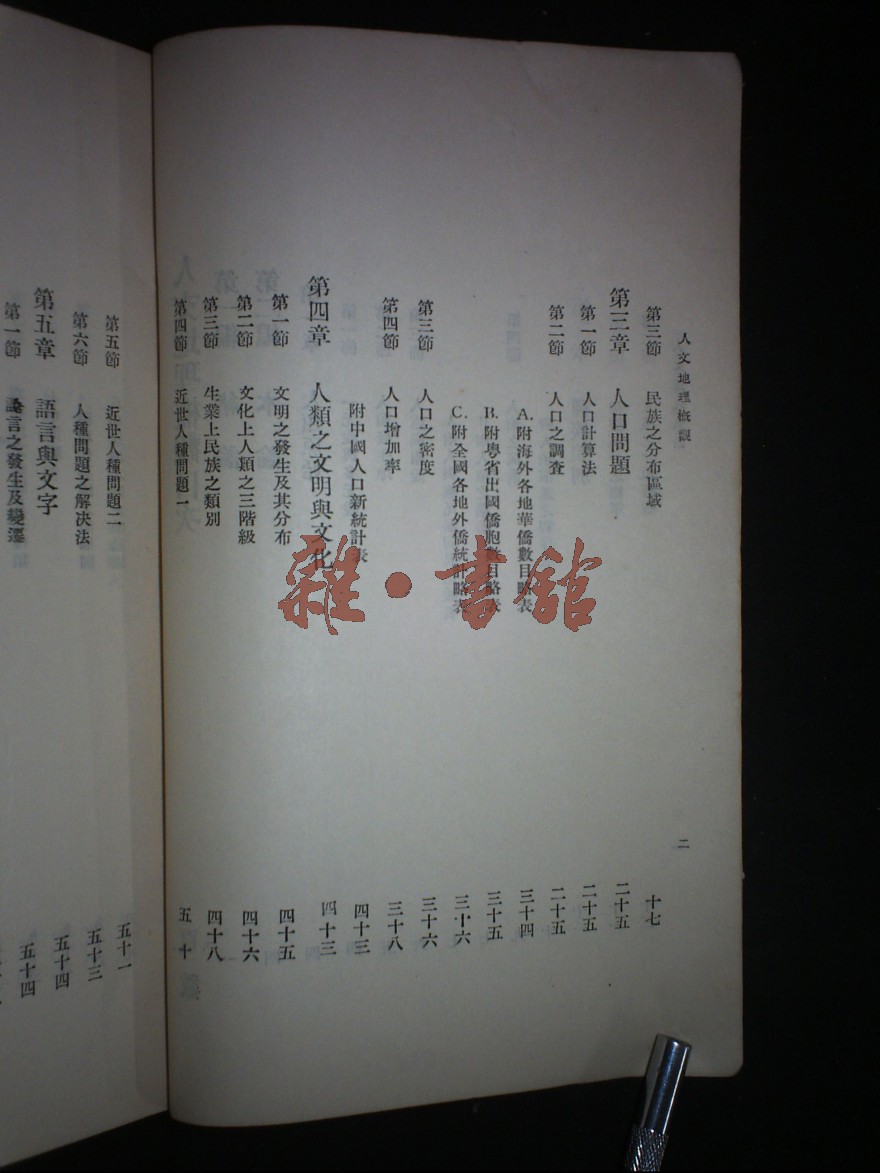 人文地理概觀
二
第三節 民族之分布區域 十七
第三章 人口問題 二十五
第一節 人口計算法 二十五
第二節 人口之調查 二十五
A. 附海外各地華僑數目略表 三十四
B. 附粵省出國僑胞數目略表 三十五
C. 附全國各地外僑統計略表 三十六
第三節 人口之密度 三十六
第四節 人口增加率 三十八
附中國人口新統計表 四十三
第四章 人類之文明與文化 四十三
第一節 文明之發生及其分布 四十五
第二節 文化上人類之三階級 四十六
第三節 生業上民族之類別 四十八
第四節 近世人種問題一 五十
第五節 近世人種問題二 五十一
第六節 人種問題之解決法 五十三
第五章 語言與文字 五十四
第一節 語言之發生及變遷 五十四
雜·書館